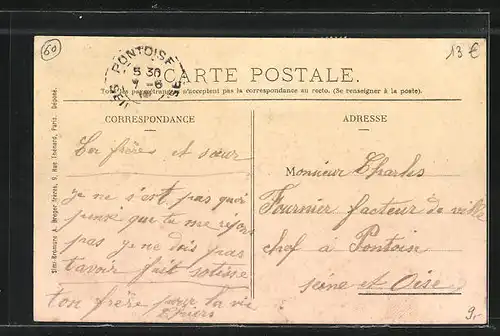 60
13 €
PONTOISE
5 30
7 - 6
SEINE
CARTE POSTALE.
n'acceptent pas la correspondance au recto. (Se renseigner à la poste).
CORRESPONDANCE
ADRESSE
frères et sœur
je ne s'est pas quoi
pensé que tu me
pas je ne dois pas
tavoir fait sotisse
ton frère pour la vie
Monsieur Charles
Fournier facteur de ville
chef a Pontoise
seine et Oise
9,-
Simi-Bromure A. Breger frères, 9, Rue Thénard, Paris. Déposé.